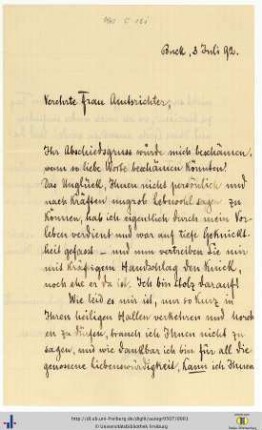 Buck, 3 Juli 92.
Verehrte Frau Amtsrichter,
Ihr Abschiedsgruss würde mich beschämen,
wenn so liebe Worte beschämen könnten!
Das Unglück, Ihnen nicht persönlich und
nach Kräften ungrob Lebewohl sagen zu
können, hab ich eigentlich durch mein Vor-
leben verdient und war auf tiefe Geknickt-
heit gefasst – und nun vertreiben Sie mir
mit kräftigem Handschlag den Knick,
noch ehe er da ist. Ich bin stolz darauf!
Wie leid es mir ist, nur so kurz in
Ihren heiligen Hallen verkehren und
en zu dürfen, brauch ich Ihnen nicht zu
sagen, und wie dankbar ich bin für all die
genossene Liebenswürdigkeit, kann ich Ihnen
© Universitätsbibliothek Freiburg